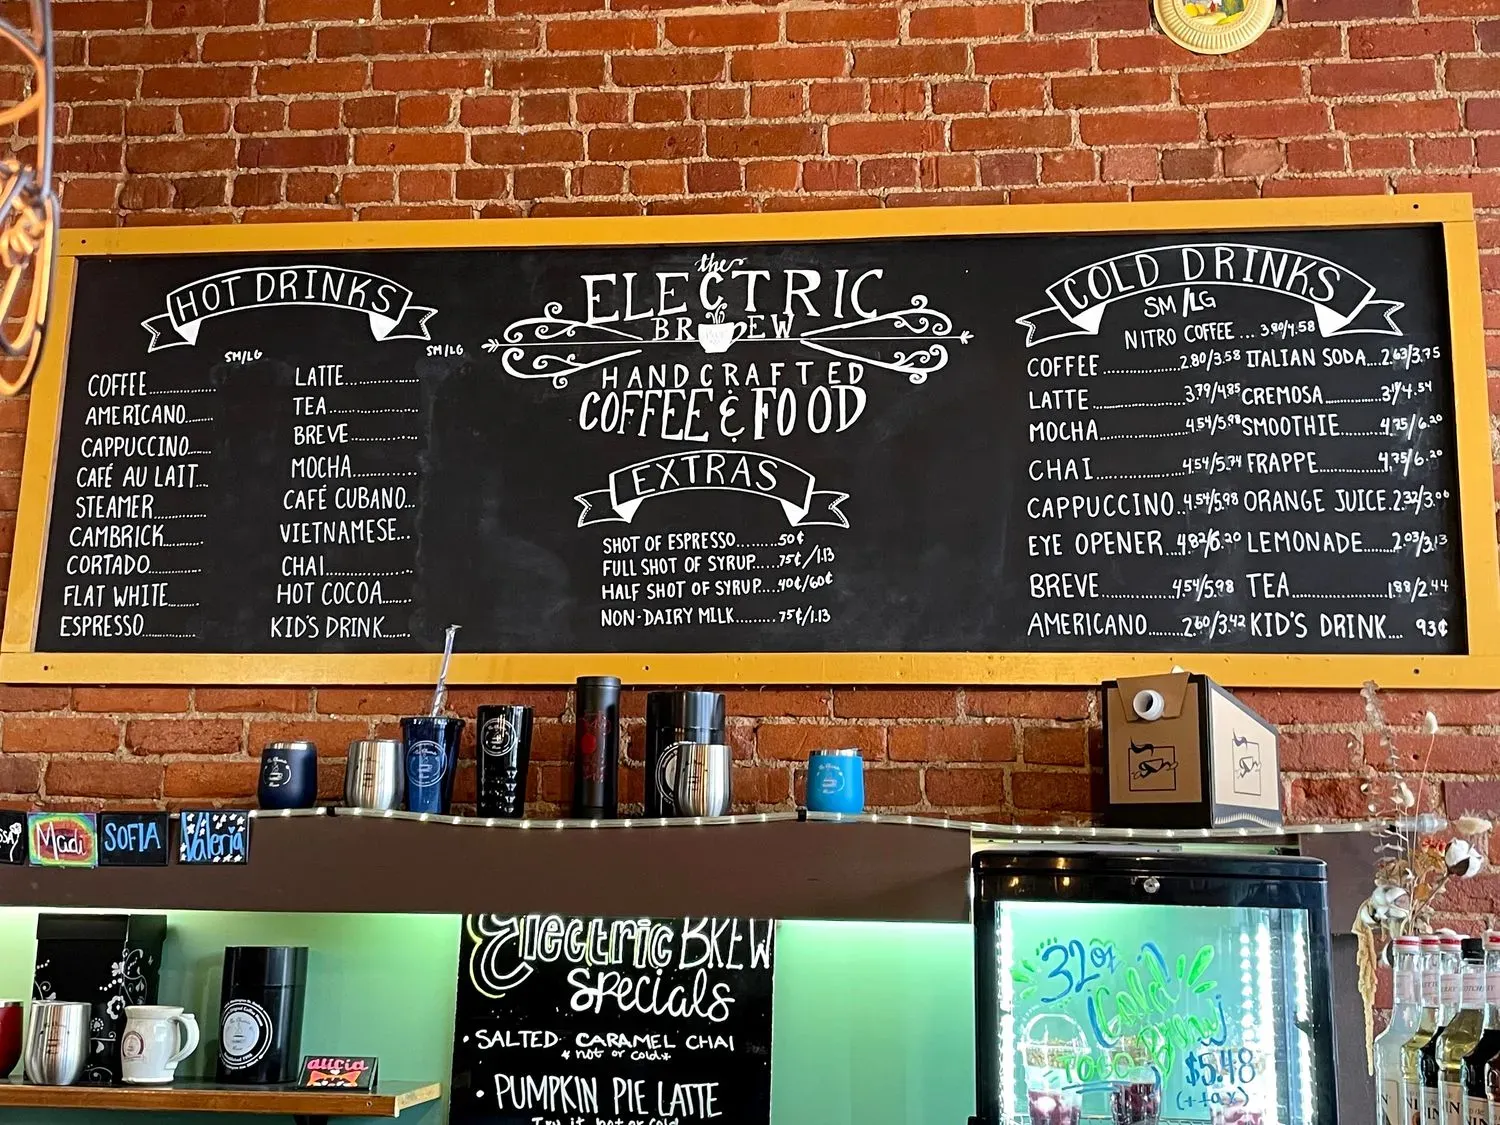 HOT DRINKS
SM/LG
SM/LG
COFFEE..............
AMERICANO.......
CAPPUCCINO......
CAFÉ AU LAIT....
STEAMER.............
CAMBRICK..........
CORTADO.............
FLAT WHITE........
ESPRESSO.............
LATTE..................
TEA.....................
BREVE.................
MOCHA................
CAFÉ CUBANO...
VIETNAMESE...
CHAI....................
HOT COCOA.......
KID'S DRINK.......
the
ELECTRIC
BREW
HANDCRAFTED
COFFEE & FOOD
EXTRAS
SHOT OF ESPRESSO.........50¢
FULL SHOT OF SYRUP.....75¢/1.13
HALF SHOT OF SYRUP....40¢/60¢
NON-DAIRY MILK.........75¢/1.13
COLD DRINKS
SM/LG
NITRO COFFEE... 3.80/4.58
COFFEE.................2.80/3.58
LATTE....................3.79/4.85
MOCHA..................4.54/5.98
CHAI......................4.54/5.74
CAPPUCCINO..4.54/5.98
EYE OPENER...4.82/6.20
BREVE............4.54/5.98
AMERICANO.......2.60/3.42
ITALIAN SODA...2.63/3.75
CREMOSA..............
SMOOTHIE.........4.75/6.20
FRAPPE..............4.75/6.20
ORANGE JUICE.2.32/3.06
LEMONADE.......2.03/3.13
TEA....................1.88/2.44
KID'S DRINK.... 93¢
Madi
SOFIA
Valeria
Electric BREW
Specials
• SALTED CARAMEL CHAI
*hot or cold*
• PUMPKIN PIE LATTE
Try it hot or cold
alicia
32oz
Cold
Brew
TOGO
$5.48
(+tax)